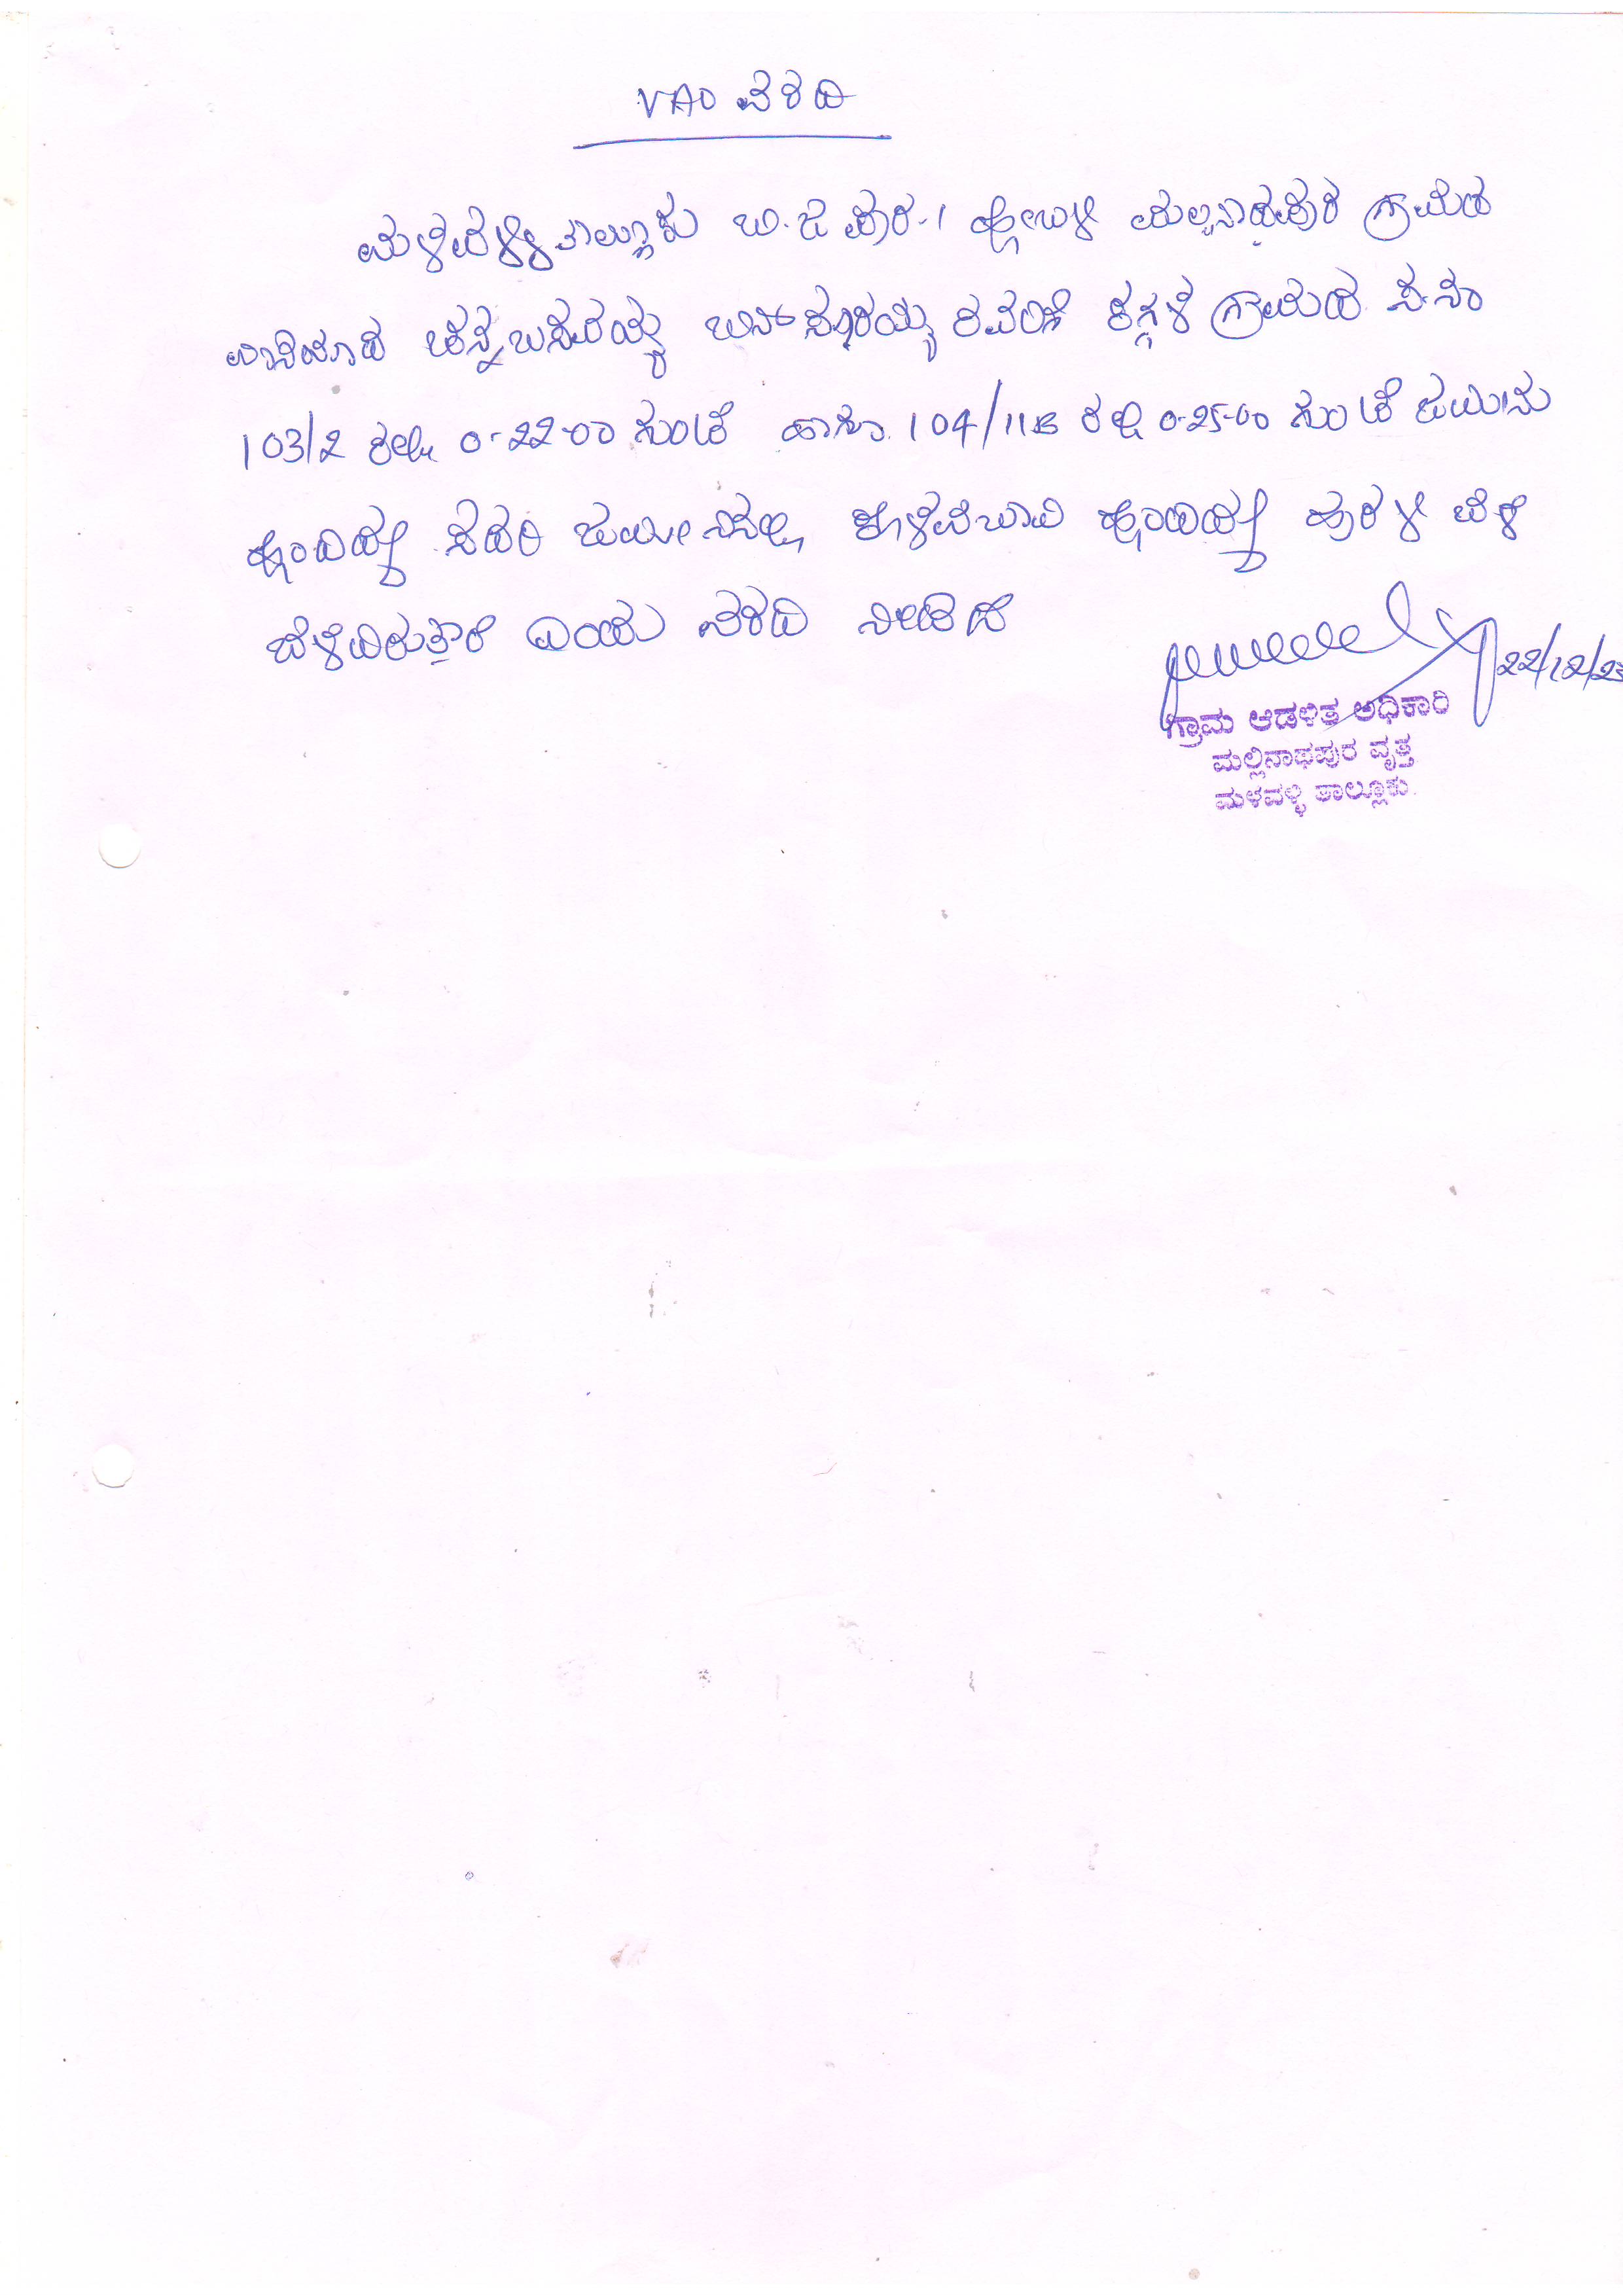 VAO ವರದಿ
ಮಳವಳ್ಳಿ ತಾಲ್ಲೂಕು ಬಿ.ಜಿ ಪುರ-1 ಹೋಬಳಿ ಮಲ್ಲಿನಾಥಪುರ ಗ್ರಾಮದ
ವಾಸಿಯಾದ ಚನ್ನಬಸವಯ್ಯ ಬಿನ್ ರವರಿಗೆ ಕಗ್ಗಳಿ ಗ್ರಾಮದ ಸ.ನಂ
103/2 ರಲ್ಲಿ 0-22-00 ಗುಂಟೆ ಹಾಗೂ 104/11B ರಲ್ಲಿ 0-25-00 ಗುಂಟೆ ಜಮೀನು
ಹೊಂದಿದ್ದು ಸದರಿ ಜಮೀನಿನಲ್ಲಿ ಕೊಳವೆಬಾವಿ ಹೊಂದಿದ್ದು ಹುರಳಿ ಬೆಳೆ
ಬೆಳೆದಿರುತ್ತಾರೆ ಎಂದು ವರದಿ ನೀಡಿದೆ
22/12/23
ಗ್ರಾಮ ಆಡಳಿತ ಅಧಿಕಾರಿ
ಮಲ್ಲಿನಾಥಪುರ ವೃತ್ತ
ಮಳವಳ್ಳಿ ತಾಲ್ಲೂಕು.